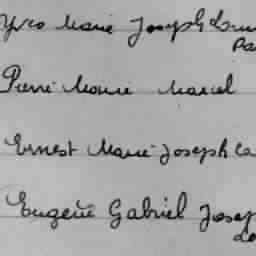 Yves Marie Joseph Lou
Pa
Pierre Marie Marcel
Ernest Marie Joseph Ca
Eugène Gabriel Josep
Lo